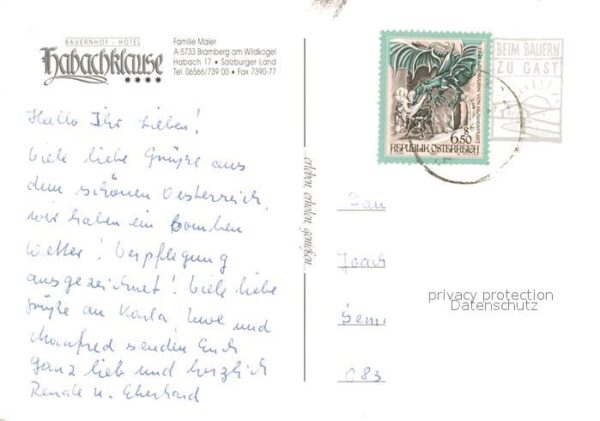 BAUERNHOF - HOTEL
Habachklause
Familie Maier
A-5733 Bramberg am Wildkogel
Habach 17 • Salzburger Land
Tel. 06566/739 00 • Fax 7390-77
Hallo Ihr Lieben!
Viele liebe Grüße aus
dem schönen Oesterreich.
wir haben ein Bomben
Wetter! Verpflegung
ausgezeichnet! Viele liebe
Grüße an Karla Uwe und
Manfred senden Euch
ganz lieb und herzlich
Renate u. Eberhard
erleben, erholen, genießen...
6.50
REPUBLIK ÖSTERREICH
BEIM BAUERN
ZU GAST
Fau
Joach
Semi
083
privacy protection
Datenschutz